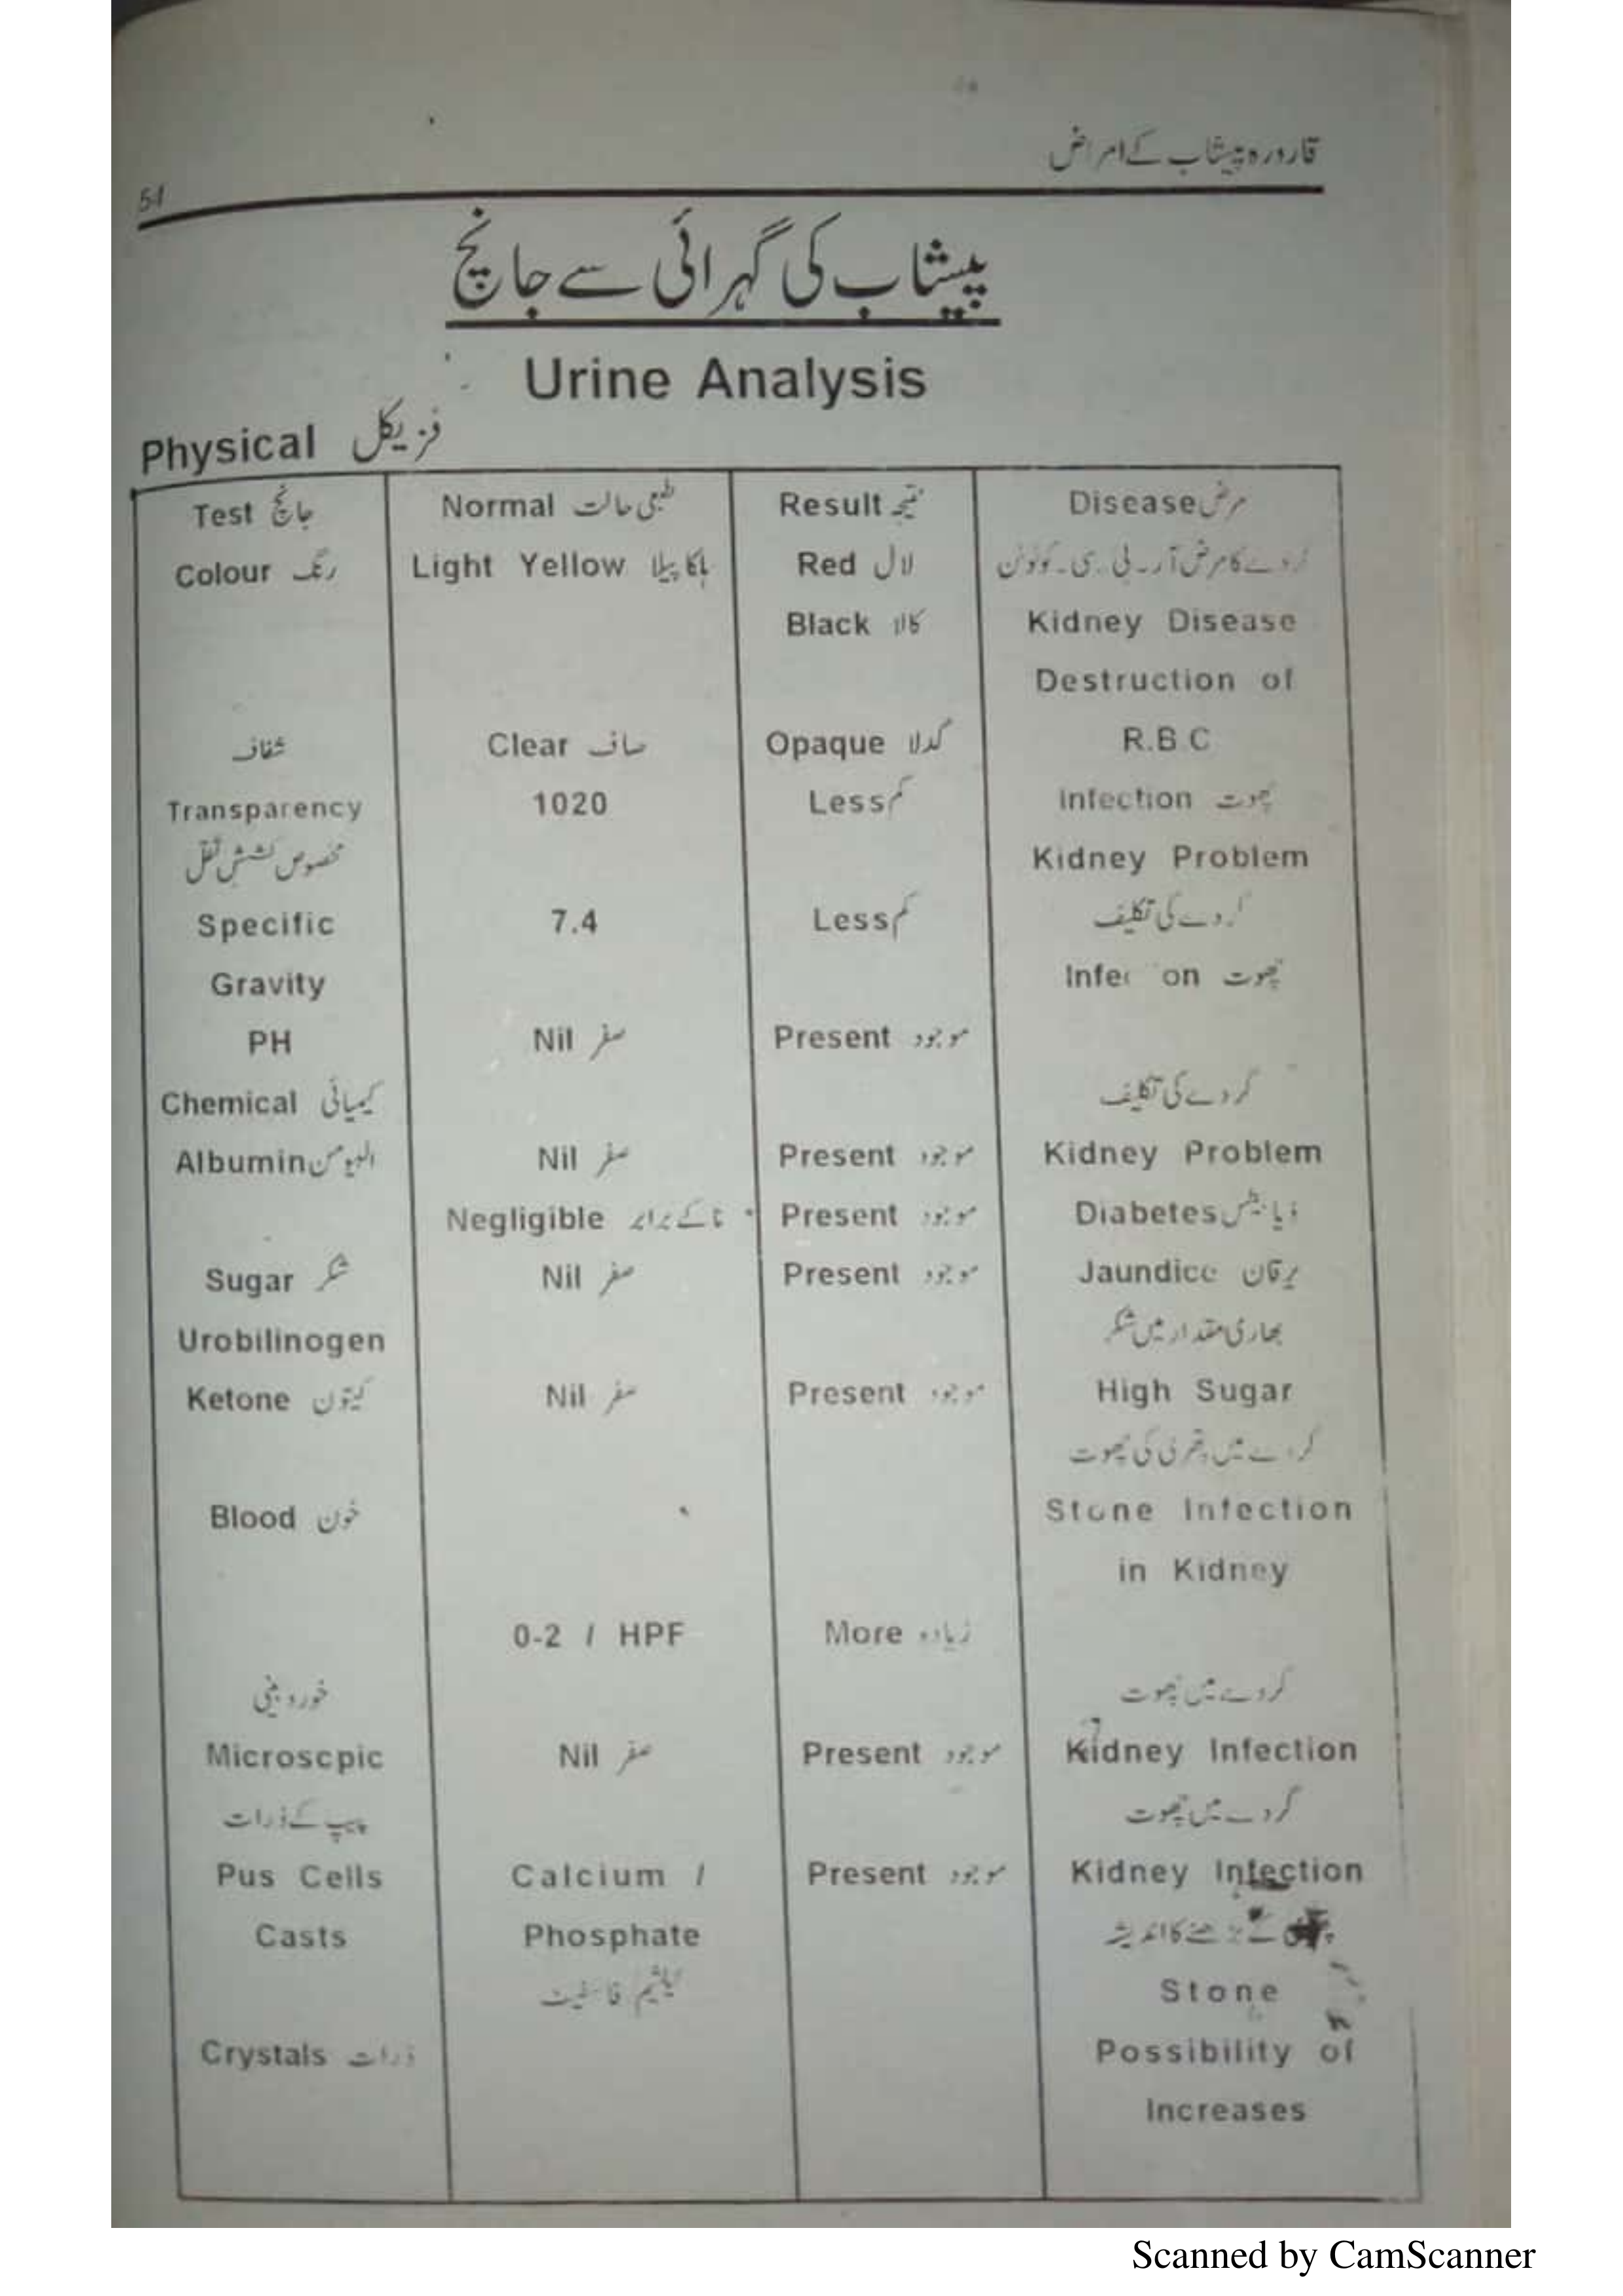 قارورہ پیشاب کے امراض
51
پیشاب کی گہرائی سے جانچ
Urine Analysis
Physical فزیکل
Test جانچ Normal طبعی حالت Result نتیجہ Disease مرض
Colour رنگ Light Yellow ہلکا پیلا Red لال گردے کا مرض آر۔بی۔سی۔
Black کالا Kidney Disease
Destruction of
شفاف Clear صاف Opaque گدلا R.B.C
Transparency 1020 Less کم Infection چھوت
مخصوص کشش ثقل Kidney Problem
Specific 7.4 Less کم گردے کی تکلیف
Gravity چھوت
PH Nil صفر Present موجود
Chemical کیمیائی گردے کی تکلیف
Albumin البیومن Nil صفر Present موجود Kidney Problem
Negligible نا کے برابر Present موجود Diabetes ذیابیطس
Sugar شکر Nil صفر Present موجود Jaundice یرقان
Urobilinogen بھاری مقدار میں شکر
Ketone کیٹون Nil صفر Present موجود High Sugar
گردے میں پتھری کی چھوت
Blood خون Stone Infection
in Kidney
0-2 / HPF More زیادہ
خوردبینی گردے میں چھوت
Microscpic Nil صفر Present موجود Kidney Infection
پیپ کے ذرات گردے میں چھوت
Pus Cells Calcium / Present موجود Kidney Infection
Casts Phosphate کے بڑھنے کا اندیشہ
کیلشیم فاسفیٹ Stone
Crystals ذرات Possibility of
Increases
Scanned by CamScanner